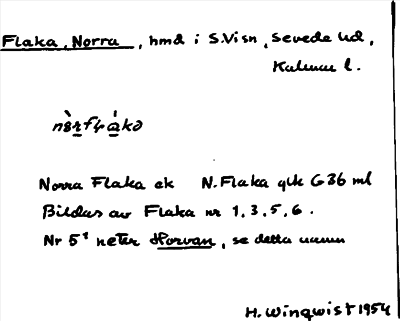 Flaka, Norra, hmd i S.Visn, Sevede hd,
Kalmar l.
Norra Flaka ek N.Flaka gtk G36 ml
Bildas av Flaka nr 1, 3, 5, 6.
Nr 5¹ heter Horvan, se detta namn
H. Winqwist 1954